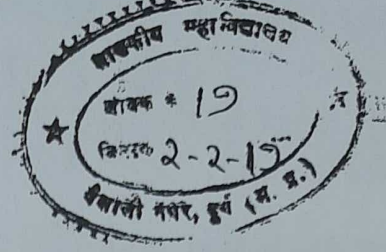 शासकीय महाविद्यालय
जावक क्र 19
दिनांक 2-2-19
वैशाली नगर, दुर्ग (म. प्र.)